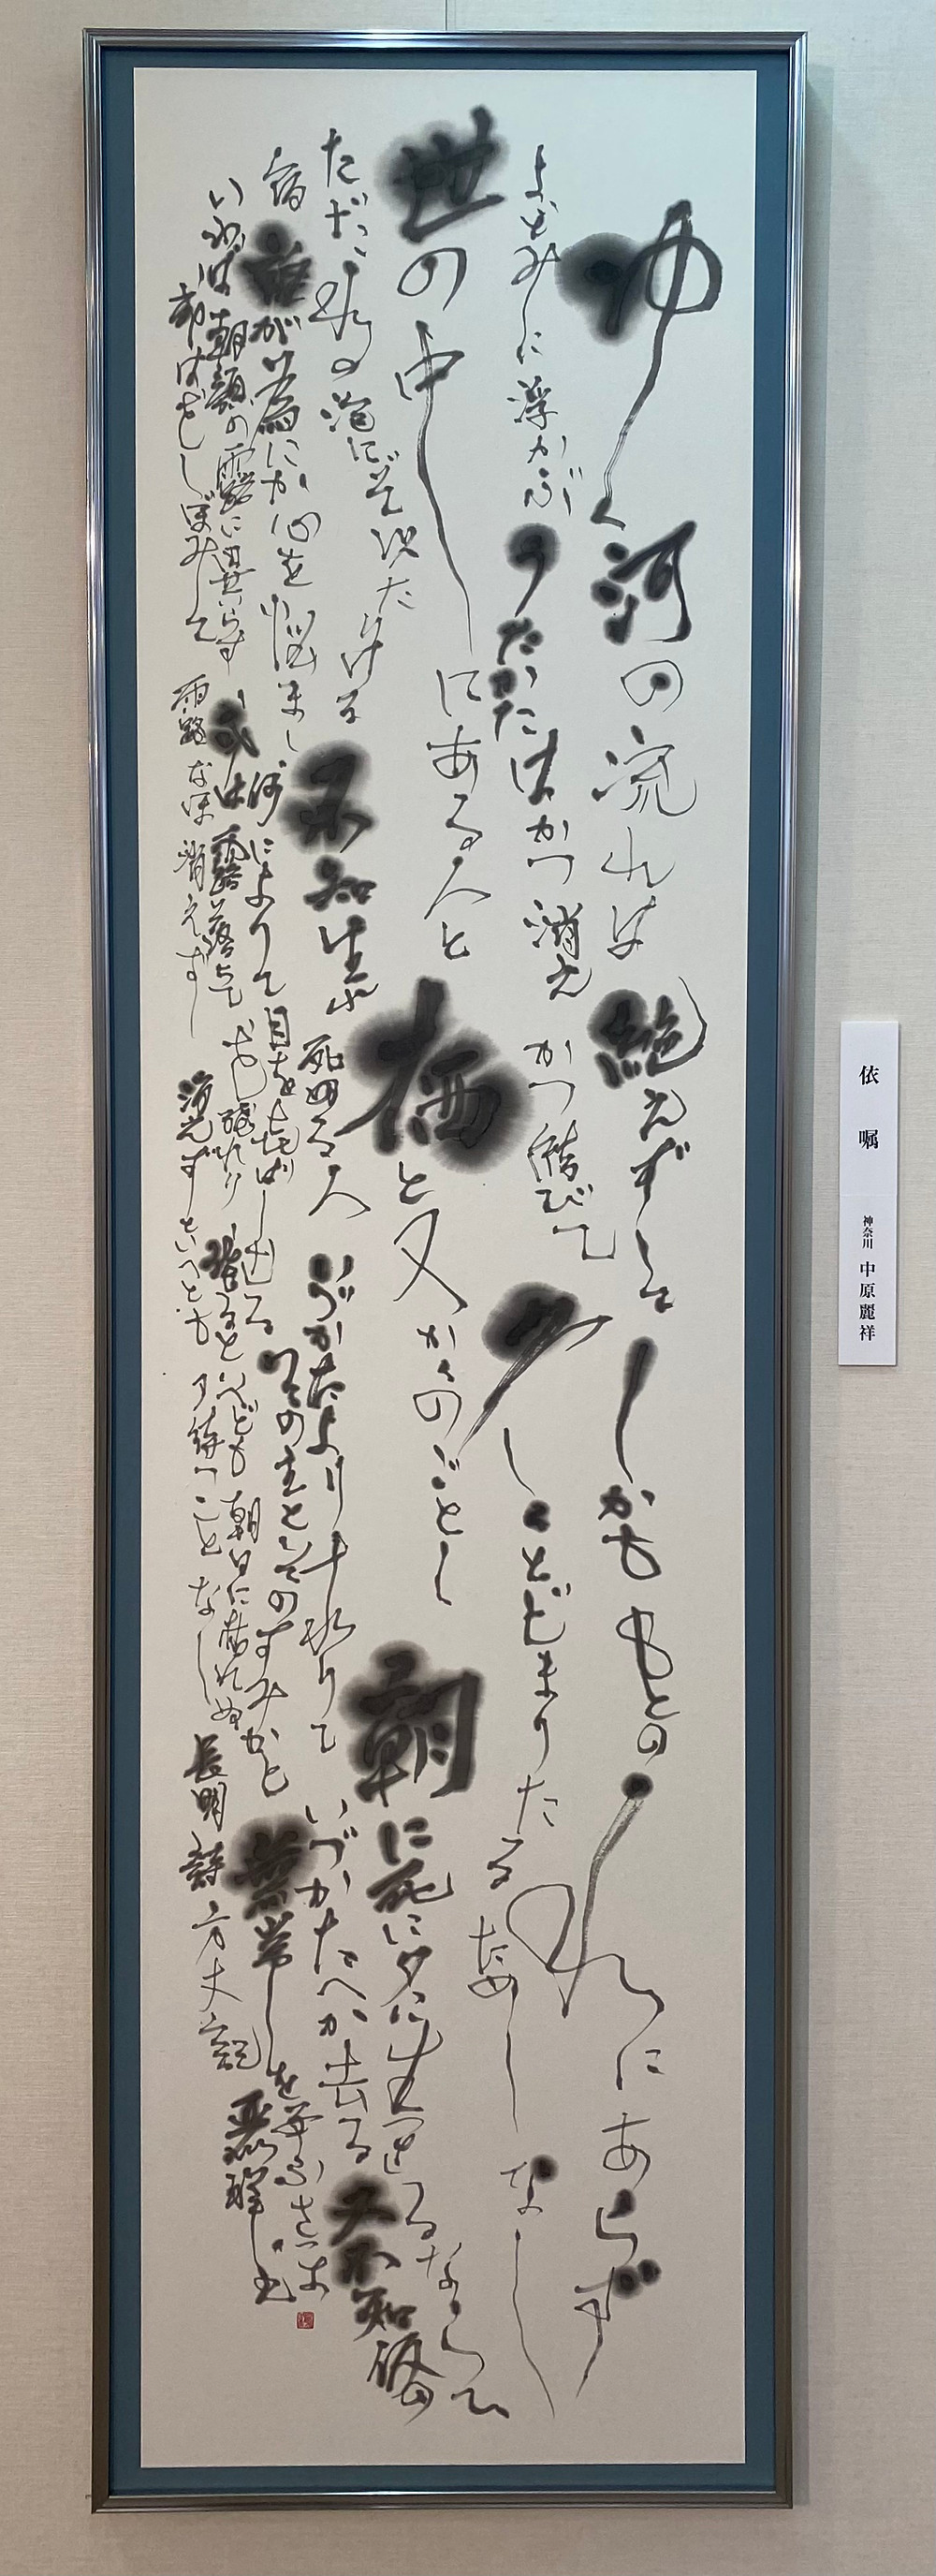 ゆく河の流れは絶えずしてしかももとのみずにあらず
よどみに浮かぶうたかたはかつ消えかつ結びて久しくとどまりたるためしなし
世の中にある人と栖と又かくのごとし
朝に死に夕に生まるるならひ
ただ水の泡にぞ似たりける
不知生れ死ぬる人いづかたより来たりて
いづかたへか去る又不知仮の
宿誰が為にか心を悩まし何によりて目を喜ばしむる
その主とそのすみかと無常を争ふさま
いはば朝顔の露に異ならず或は露落ちて花残れり残るといへども朝日に枯れぬ
或は花しぼみて露なほ消えず消えずといへども夕待つことなし
長明 方丈記
麗祥書
依嘱
神奈川 中原麗祥